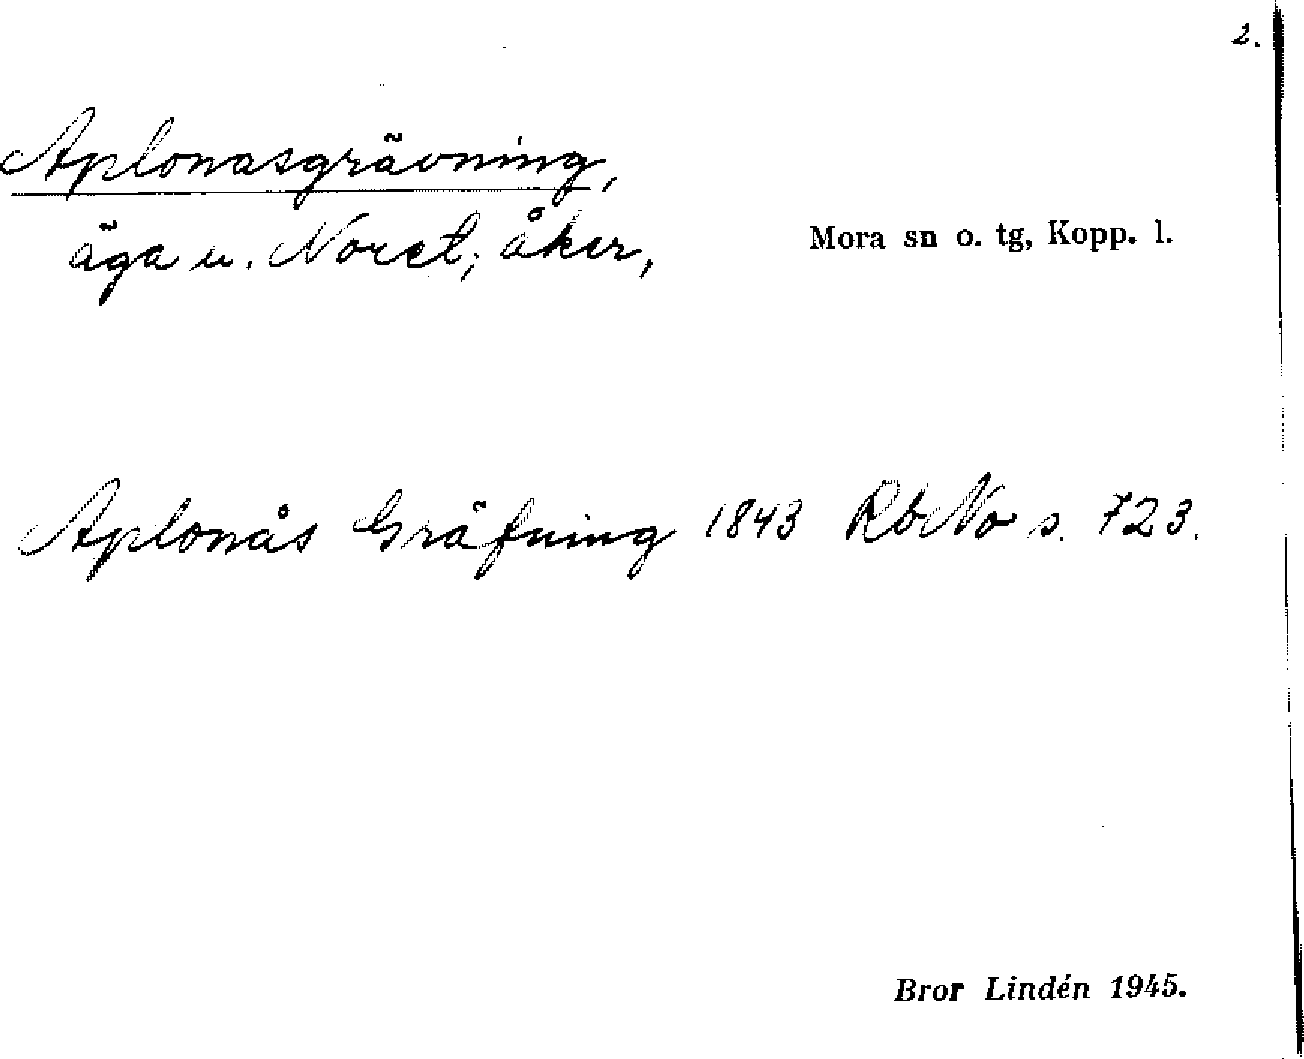 2.
Aplonasgrävning,
äga u. Noret; åker,
Mora sn o. tg, Kopp. l.
Aplonås Gräfning 1843 RbNo s. 723.
Bror Lindén 1945.